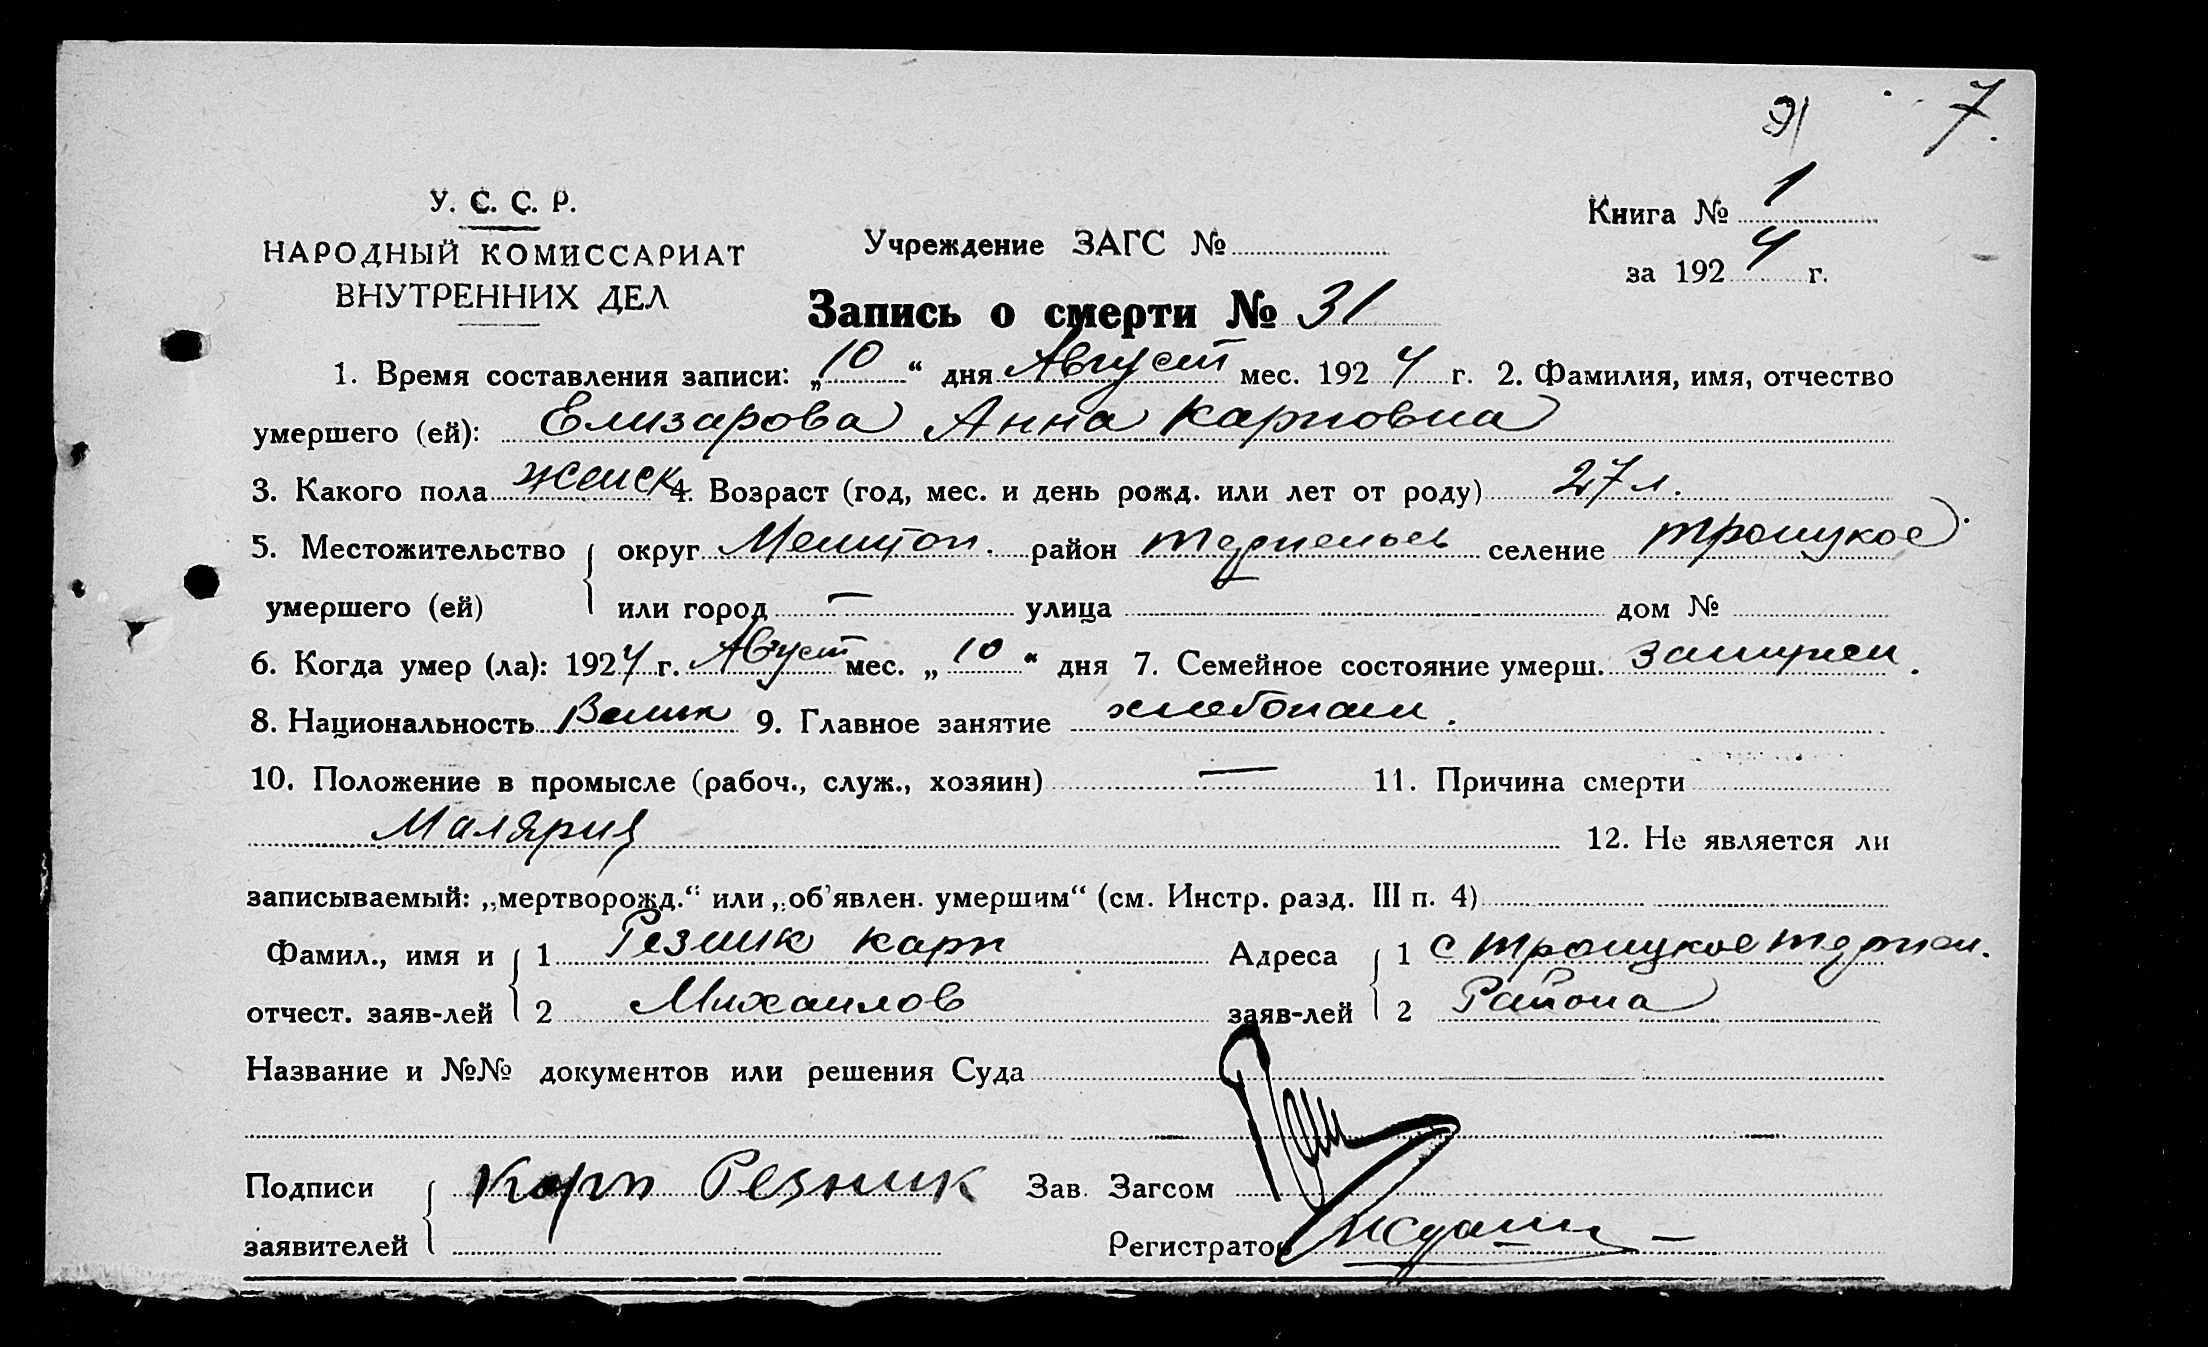 31 7.
У. С. С. Р.
НАРОДНЫЙ КОМИССАРИАТ
ВНУТРЕННИХ ДЕЛ
Учреждение ЗАГС №
Книга № 1
за 1924 г.
Запись о смерти № 31
1. Время составления записи: „10“ дня Август мес. 1924 г. 2. Фамилия, имя, отчество
умершего (ей): Елизарова Анна Карповна
3. Какого пола женск 4. Возраст (год, мес. и день рожд. или лет от роду) 27 л.
5. Местожительство округ Мелитоп. район селение Троицкое
умершего (ей) или город — улица дом №
6. Когда умер (ла): 1924 г. Август мес. „10“ дня 7. Семейное состояние умерш. замужем.
8. Национальность 9. Главное занятие хлебопаш.
10. Положение в промысле (рабоч., служ., хозяин) — 11. Причина смерти
Малярия 12. Не является ли
записываемый: „мертворожд.“ или „об'явлен. умершим“ (см. Инстр. разд. III п. 4)
Фамил., имя и 1 Резник Карп Адреса 1 с Троицкое
отчест. заяв-лей 2 Михаилов заяв-лей 2 Района
Название и №№ документов или решения Суда
Подписи Карп Резник Зав. Загсом
заявителей Регистратор